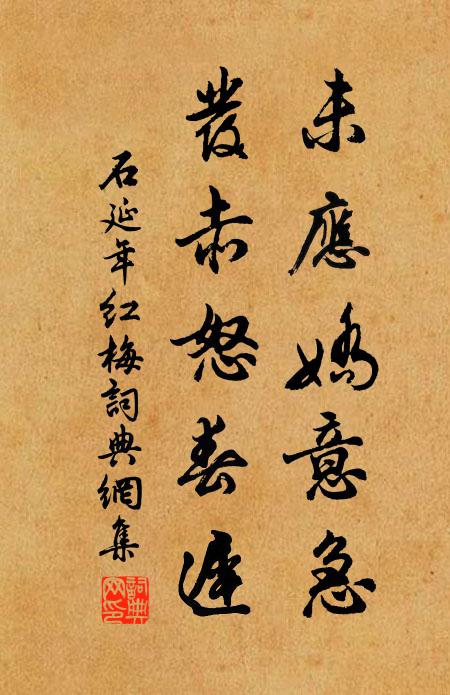 未應嬌意急
發赤怒春遲
石延年紅梅詞典網集
詞典網印